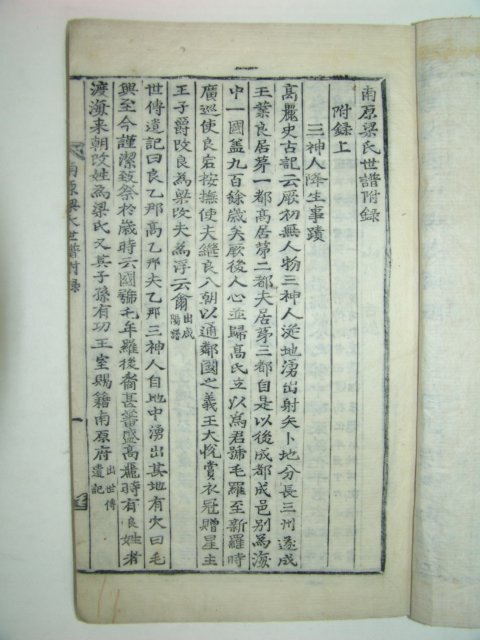 南原梁氏世譜附録
附録上
三神人降生事蹟
高麗史古記云厥初無人物三神人從地湧出射矢卜地分長三州遂成
王業良居第一都高居第二都夫居第三都自是以後成都成邑別為海
中一國盖九百餘歲矣厥後人心並歸高氏立以爲君號毛羅至新羅時
廣巡使良宕按撫使夫繼良八朝以通鄰國之義王大悅賞衣冠贈星主
王子爵改良為梁改夫為浮云爾 出成陽譜
世傳遺記曰良乙那高乙那夫乙那三神人自地中湧出其地有穴曰毛
興至今謹潔致祭於歲時云國號乇羅後裔甚蕃盛高麗時有良姓者
渡海来朝改姓為梁氏又其子孫有功王室賜籍南原府 出世傳遺記
南原梁氏世譜附録
一